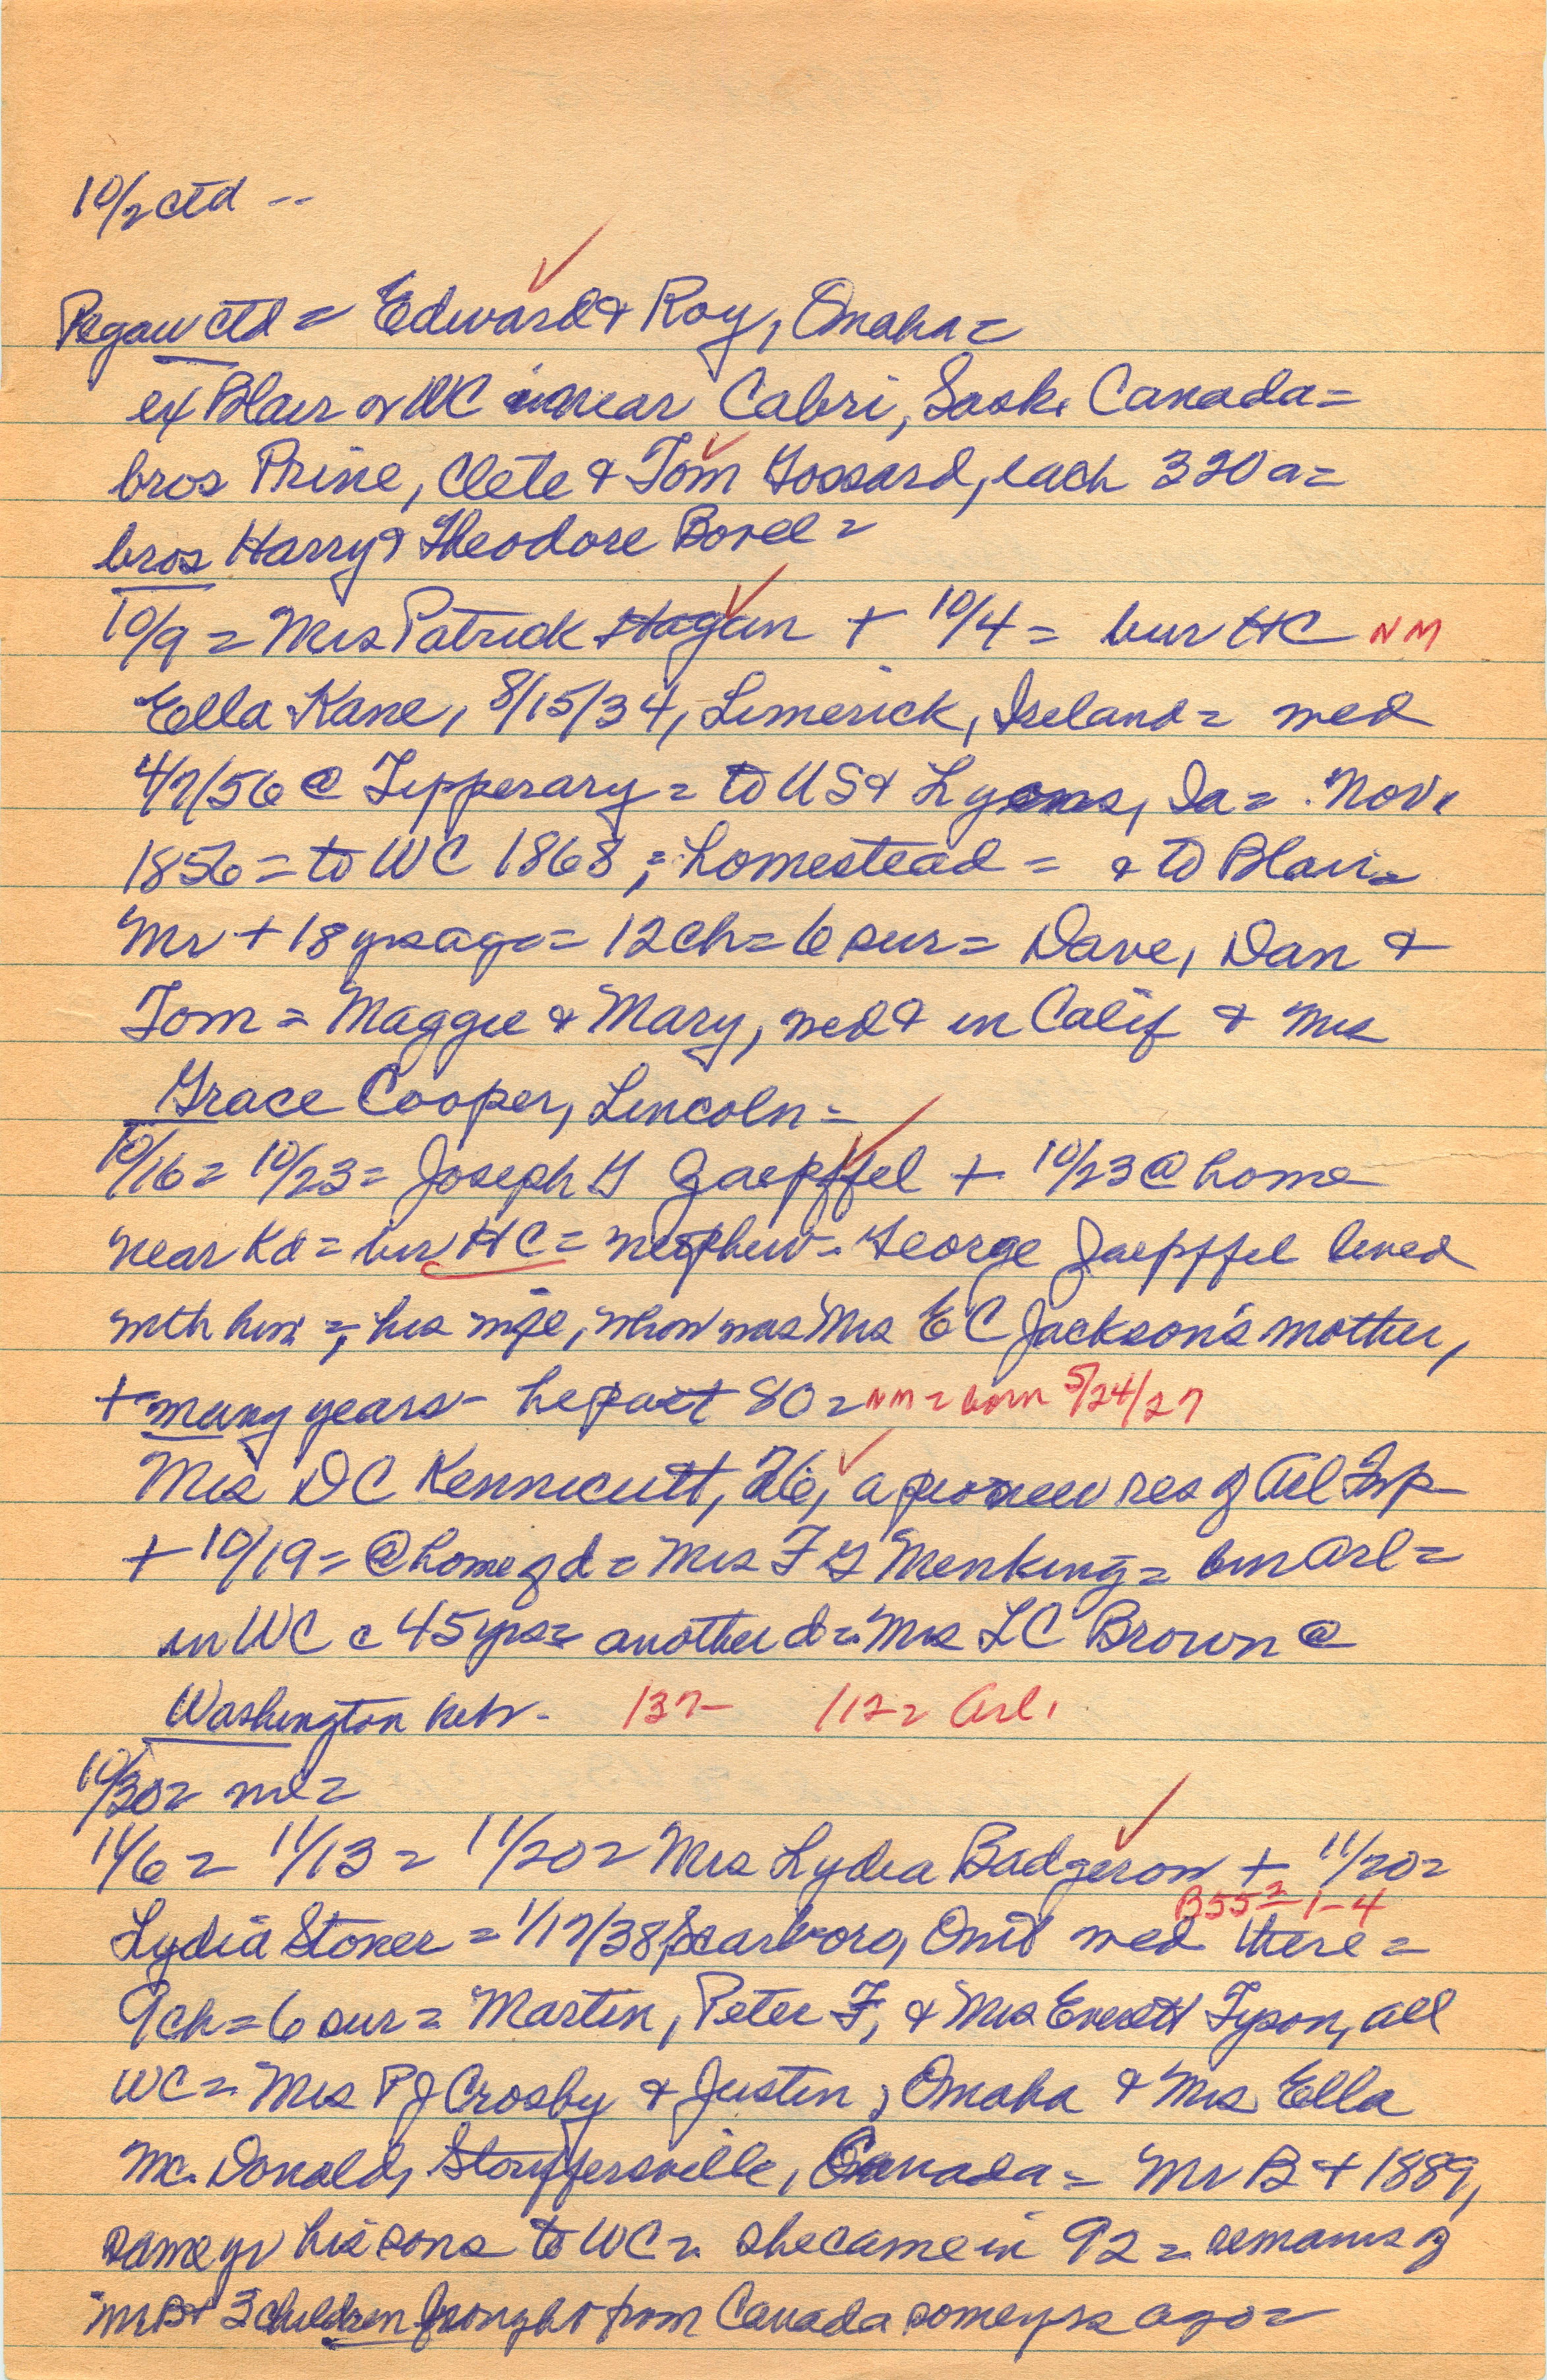 10/2 ctd --
Pegau ctd = Edward & Roy, Omaha =
ex Blair or WC in near Cabri, Sask. Canada =
bros Prine, Clete & Tom Gossard, each 320 a =
bros Harry & Theodore Bovee =
10/9 = Mrs Patrick Hagan + 10/4 = bur HC NM
Ella Kane, 8/15/34, Limerick, Ireland = wed
4/7/56 @ Tipperary = to US & Lyons, Ia = Nov.
1856 = to WC 1868 ; homestead = & to Blair =
Mr + 18 yrs ago = 12 ch = 6 sur = Dave, Dan &
Tom = Maggie & Mary, wed & in Calif & Mrs
Grace Cooper, Lincoln =
10/16 = 10/23 = Joseph G Jaepffel + 10/23 @ home
near Kd = bur HC = nephew = George Jaepffel lived
with him =, his wife, whow was Mrs E C Jackson's mother,
+ many years - he past 80 = NM = born 5/24/27
Mrs DC Kennicutt, 76, a pioneer res of Arl Twp
+ 10/19 = @ home of d = Mrs F G Menking = bur Arl =
in WC c 45 yrs = another d = Mrs LC Brown @
Washington Nebr - 137- 112 = Arl.
10/30 = nil =
11/6 = 11/13 = 11/20 = Mrs Lydia Badgerow + 11/20 =
B55 = 1-4
Lydia Stoner = 1/17/38, Scarboro, Ont wed there =
9 ch = 6 sur = Martin, Peter F, & Mrs Everett Tyson, all
WC = Mrs P J Crosby & Justin, Omaha & Mrs Ella
Mc Donald, Stouffersville, Canada = Mr B + 1889,
same yr his sons to WC = she came in 92 = remains of
Mr B & 3 children brought from Canada some yrs ago =